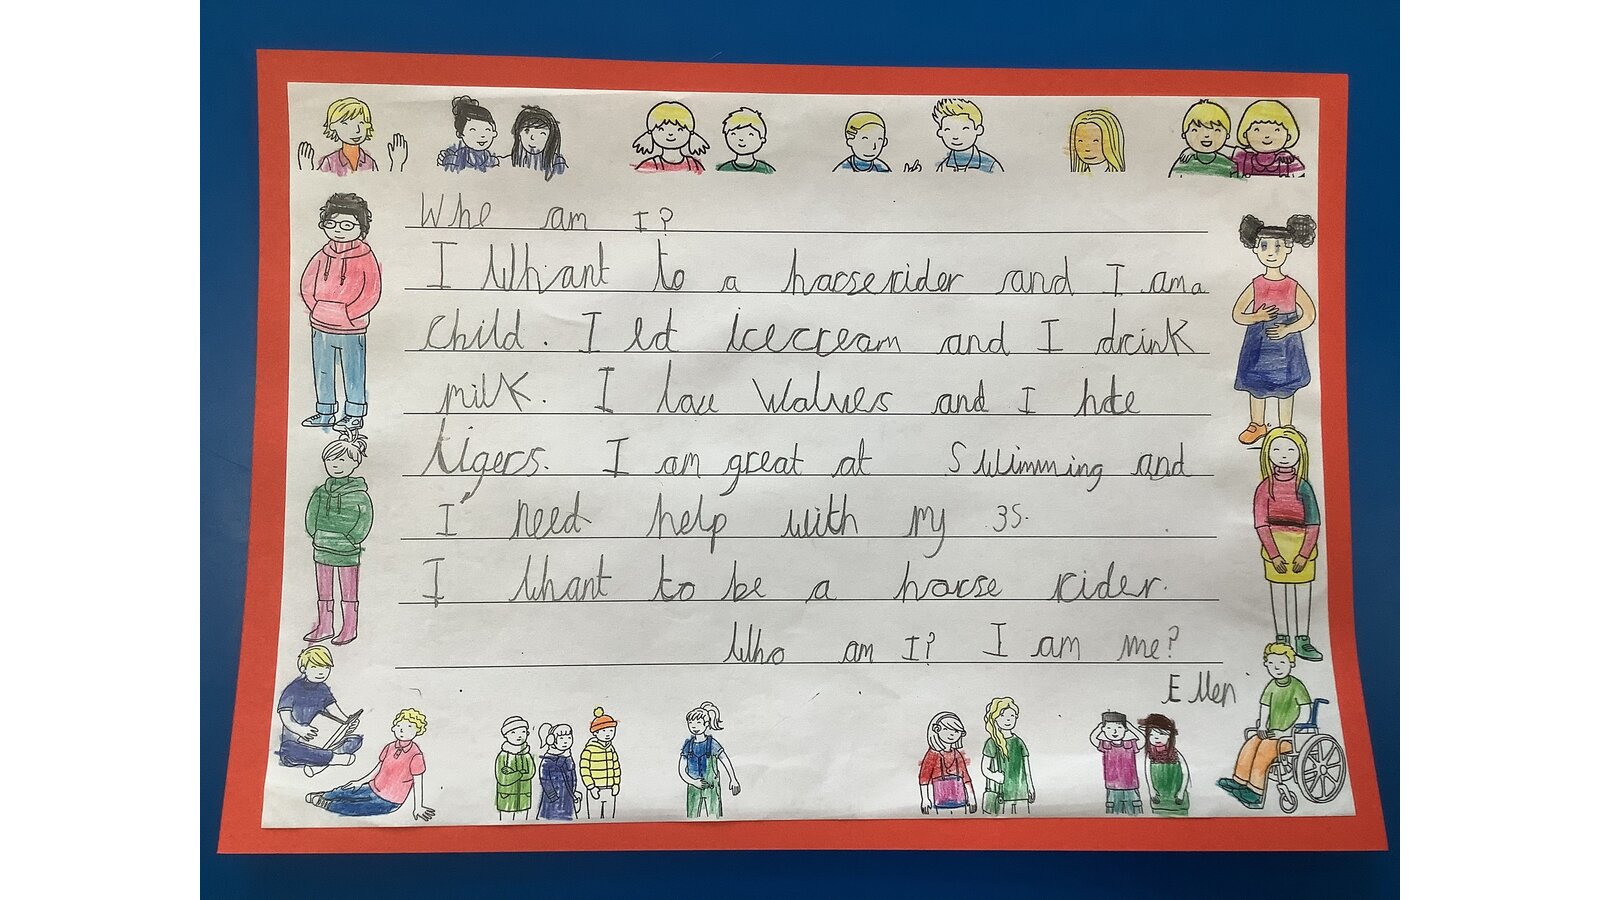 Who am I?
I Whant to a horse rider and I am a
child. I et icecream and I drink
milk. I love Wolves and I hate
tigers. I am great at Swimming and
I need help with my 3s.
I whant to be a horse rider.
Who am I? I am me?
Ellen